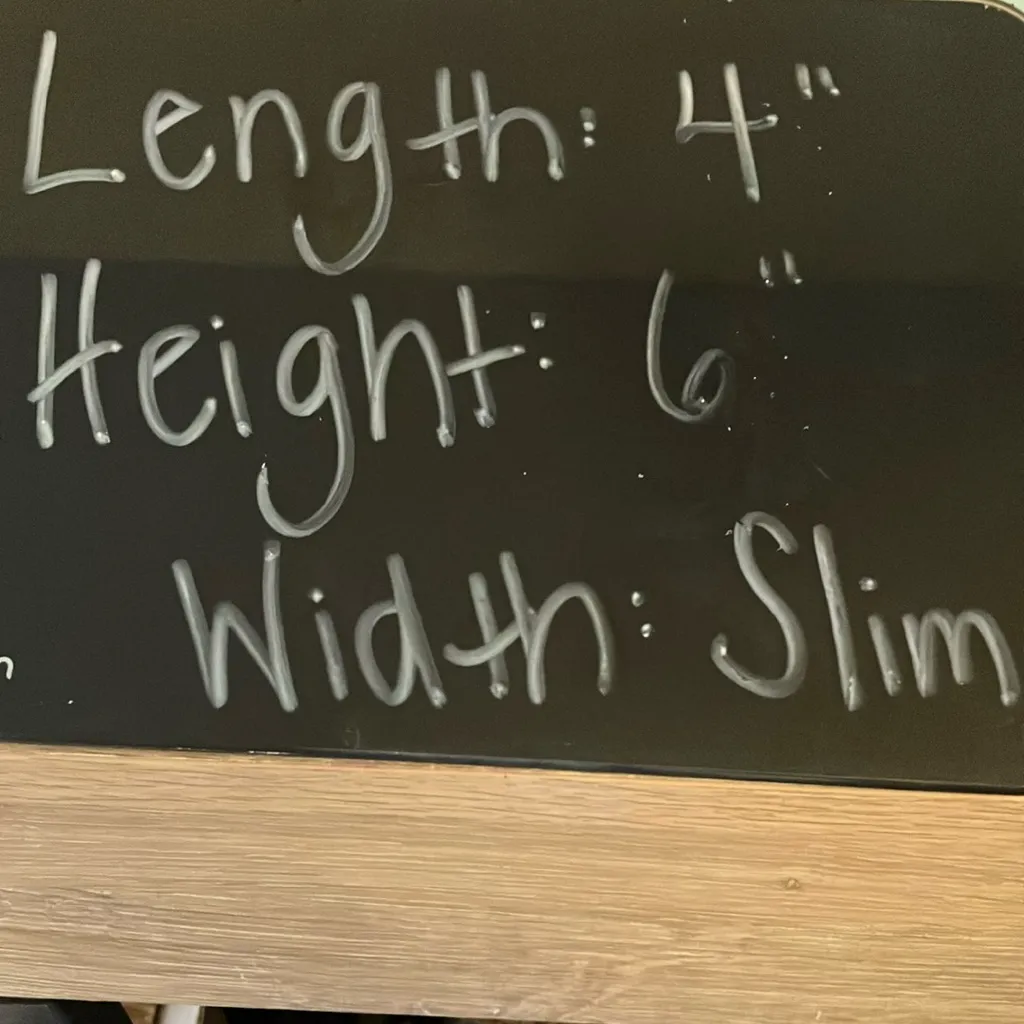 Length: 4"
Height: 6"
Width: Slim